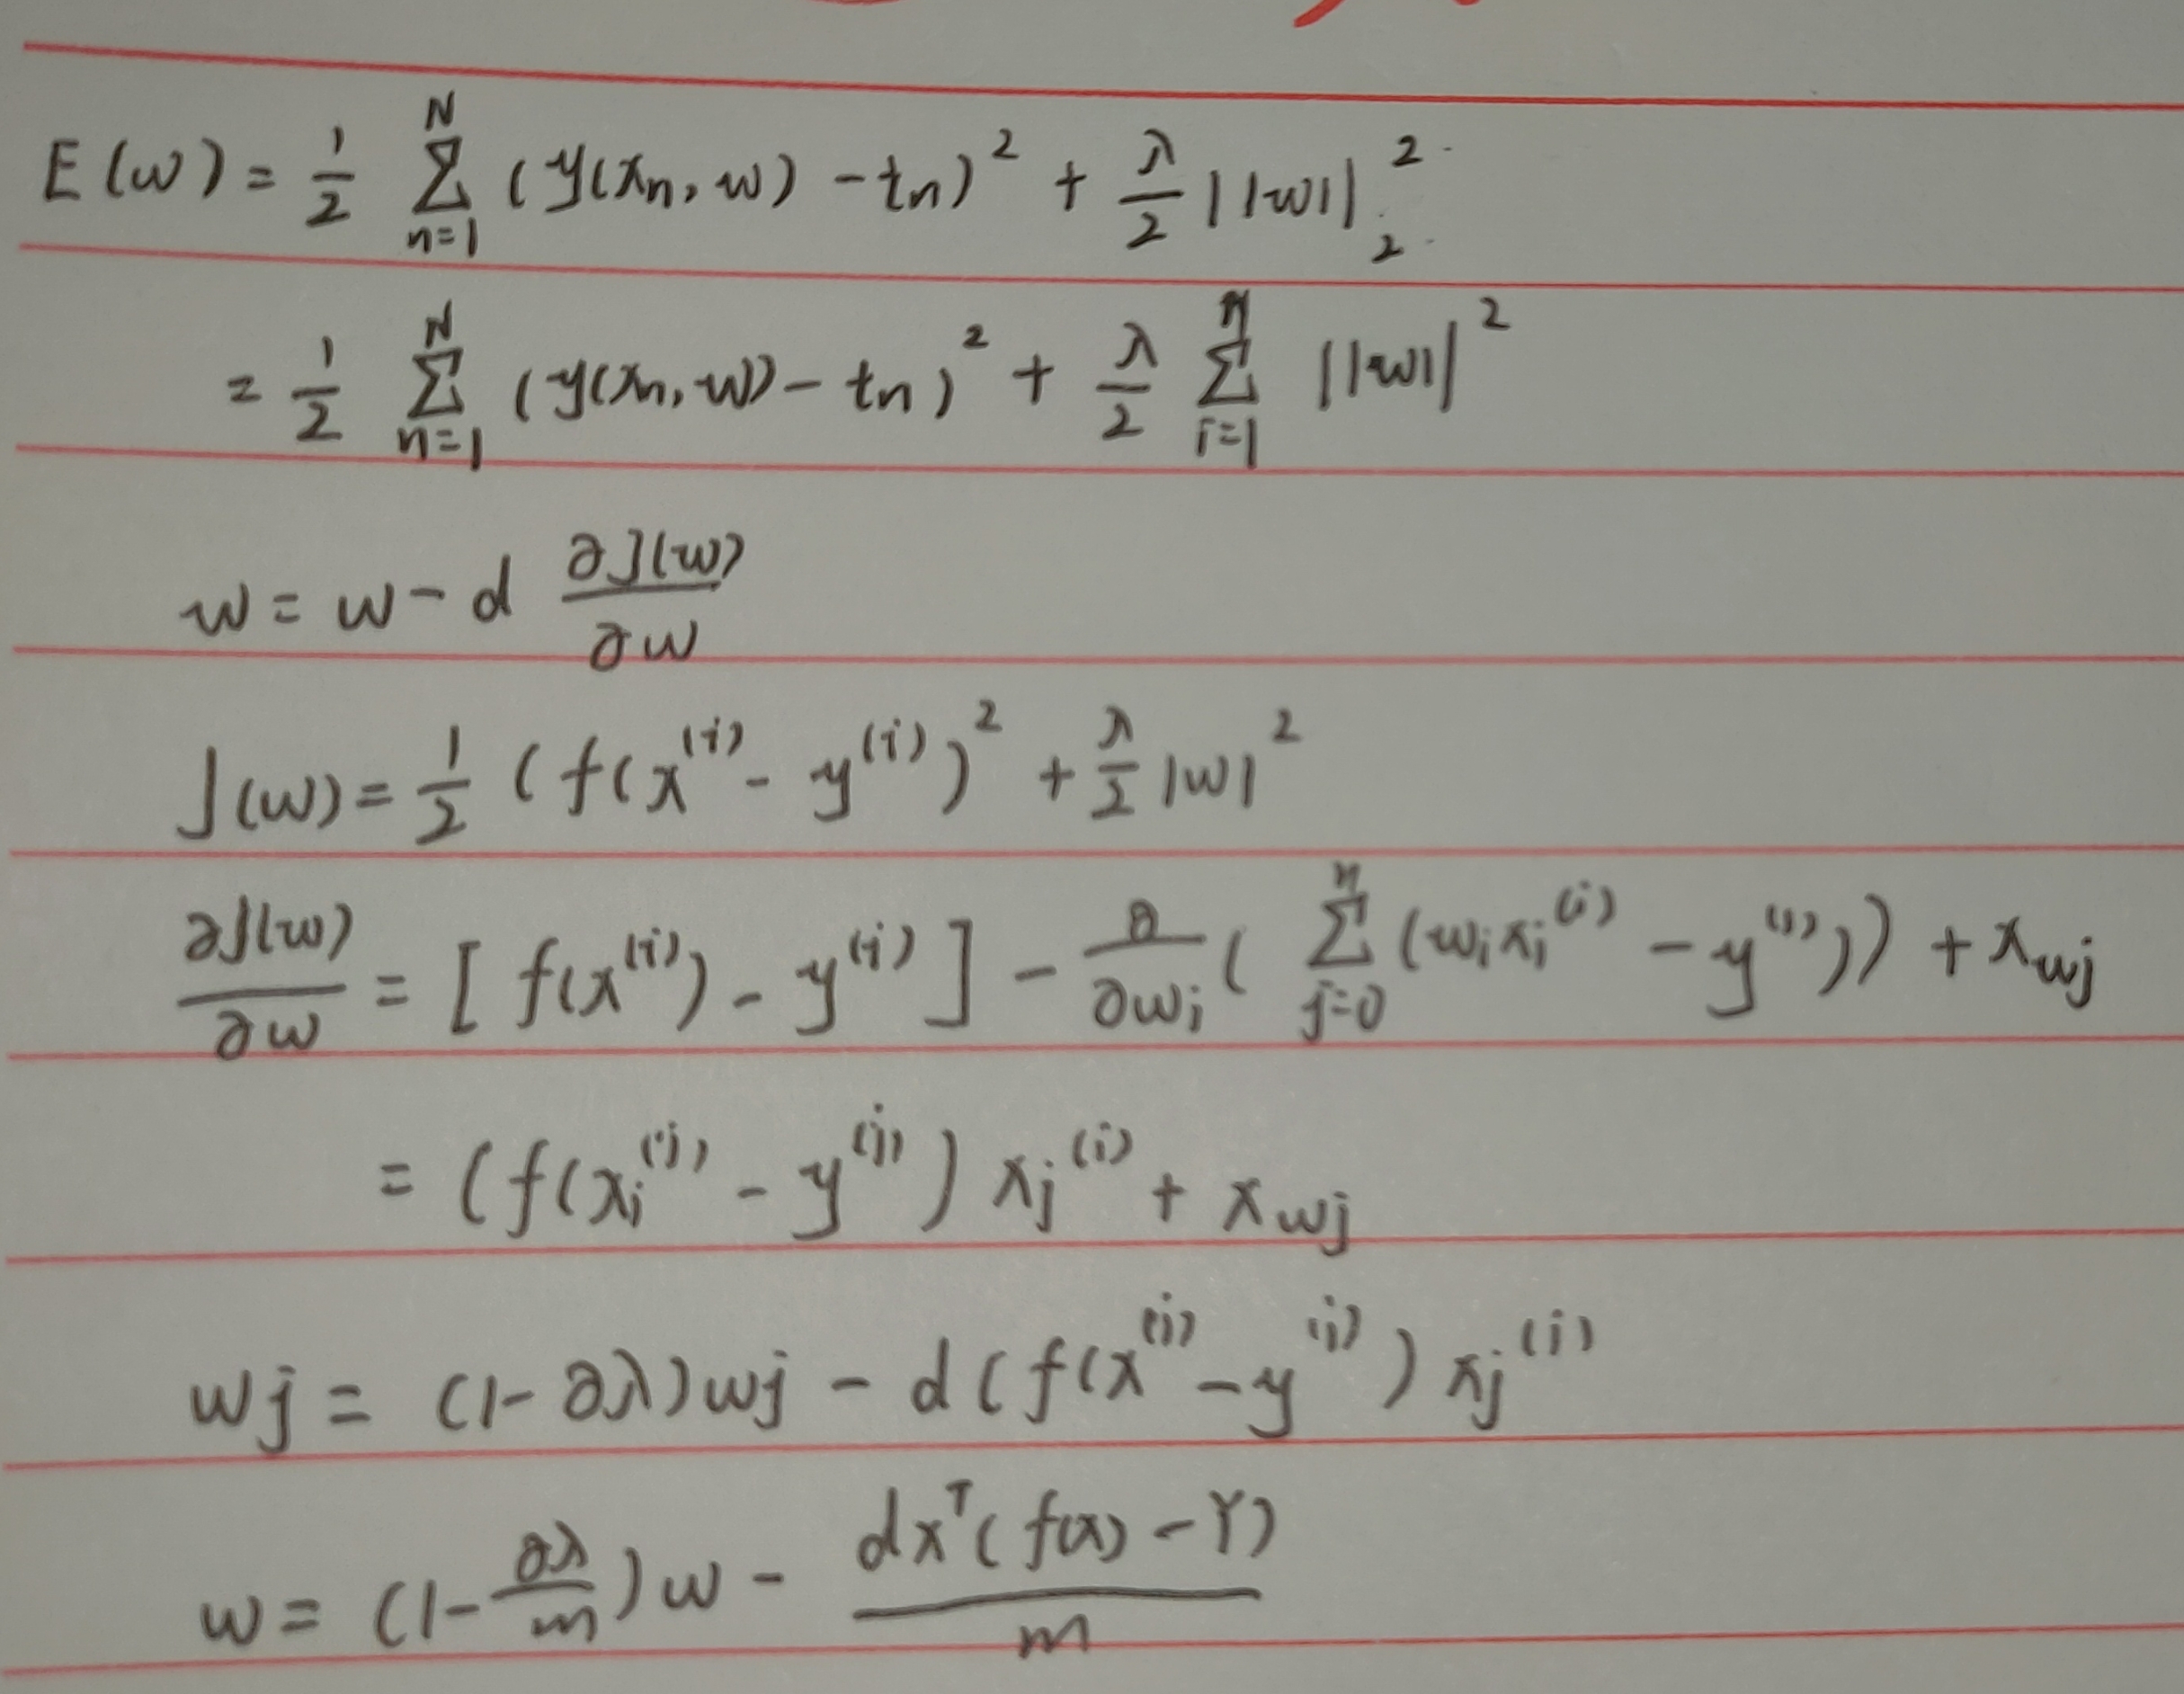 E(w) = \frac{1}{2} \sum_{n=1}^{N} (y(x_n, w) - t_n)^2 + \frac{λ}{2} ||w||_2^2
= \frac{1}{2} \sum_{n=1}^{N} (y(x_n, w) - t_n)^2 + \frac{λ}{2} \sum_{i=1}^{n} ||w||^2
w = w - d \frac{∂J(w)}{∂w}
J(w) = \frac{1}{2} (f(x^{(i)} - y^{(i)})^2 + \frac{λ}{2} |w|^2
\frac{∂J(w)}{∂w} = [f(x^{(i)}) - y^{(i)}] - \frac{∂}{∂w_i} (\sum_{j=0}^{n} (w_i x_i^{(i)} - y^{(i)})) + x_{wj}
= (f(x_i^{(j)} - y^{(j)}) x_j^{(i)} + x_{wj}
w_j = (1 - ∂λ) w_j - d (f(x^{(i)} - y^{(i)}) x_j^{(i)}
w = (1 - \frac{∂λ}{m}) w - \frac{dx^T (f(x) - Y)}{m}